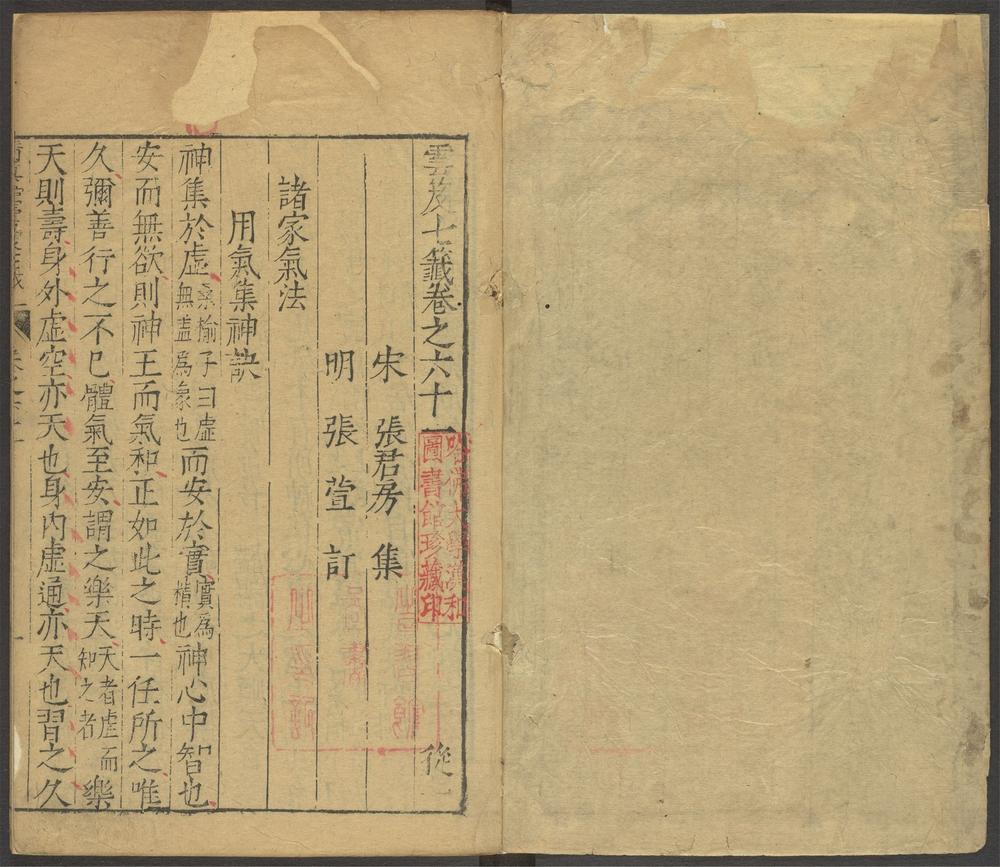 雲笈七籤卷之六十一
從一
哈佛大學漢和
圖書館珍藏印
宋 張君房 集
明 張萱 訂
諸家氣法
用氣集神訣
神集於虛桑榆子曰虛無蓋爲象也而安於實實爲積也神心中智也
安而無欲則神王而氣和正如此之時一任所之唯
久彌善行之不已體氣至安謂之樂天天者虛而知之者樂
天則壽身外虛空亦天也身內虛通亦天也習之久